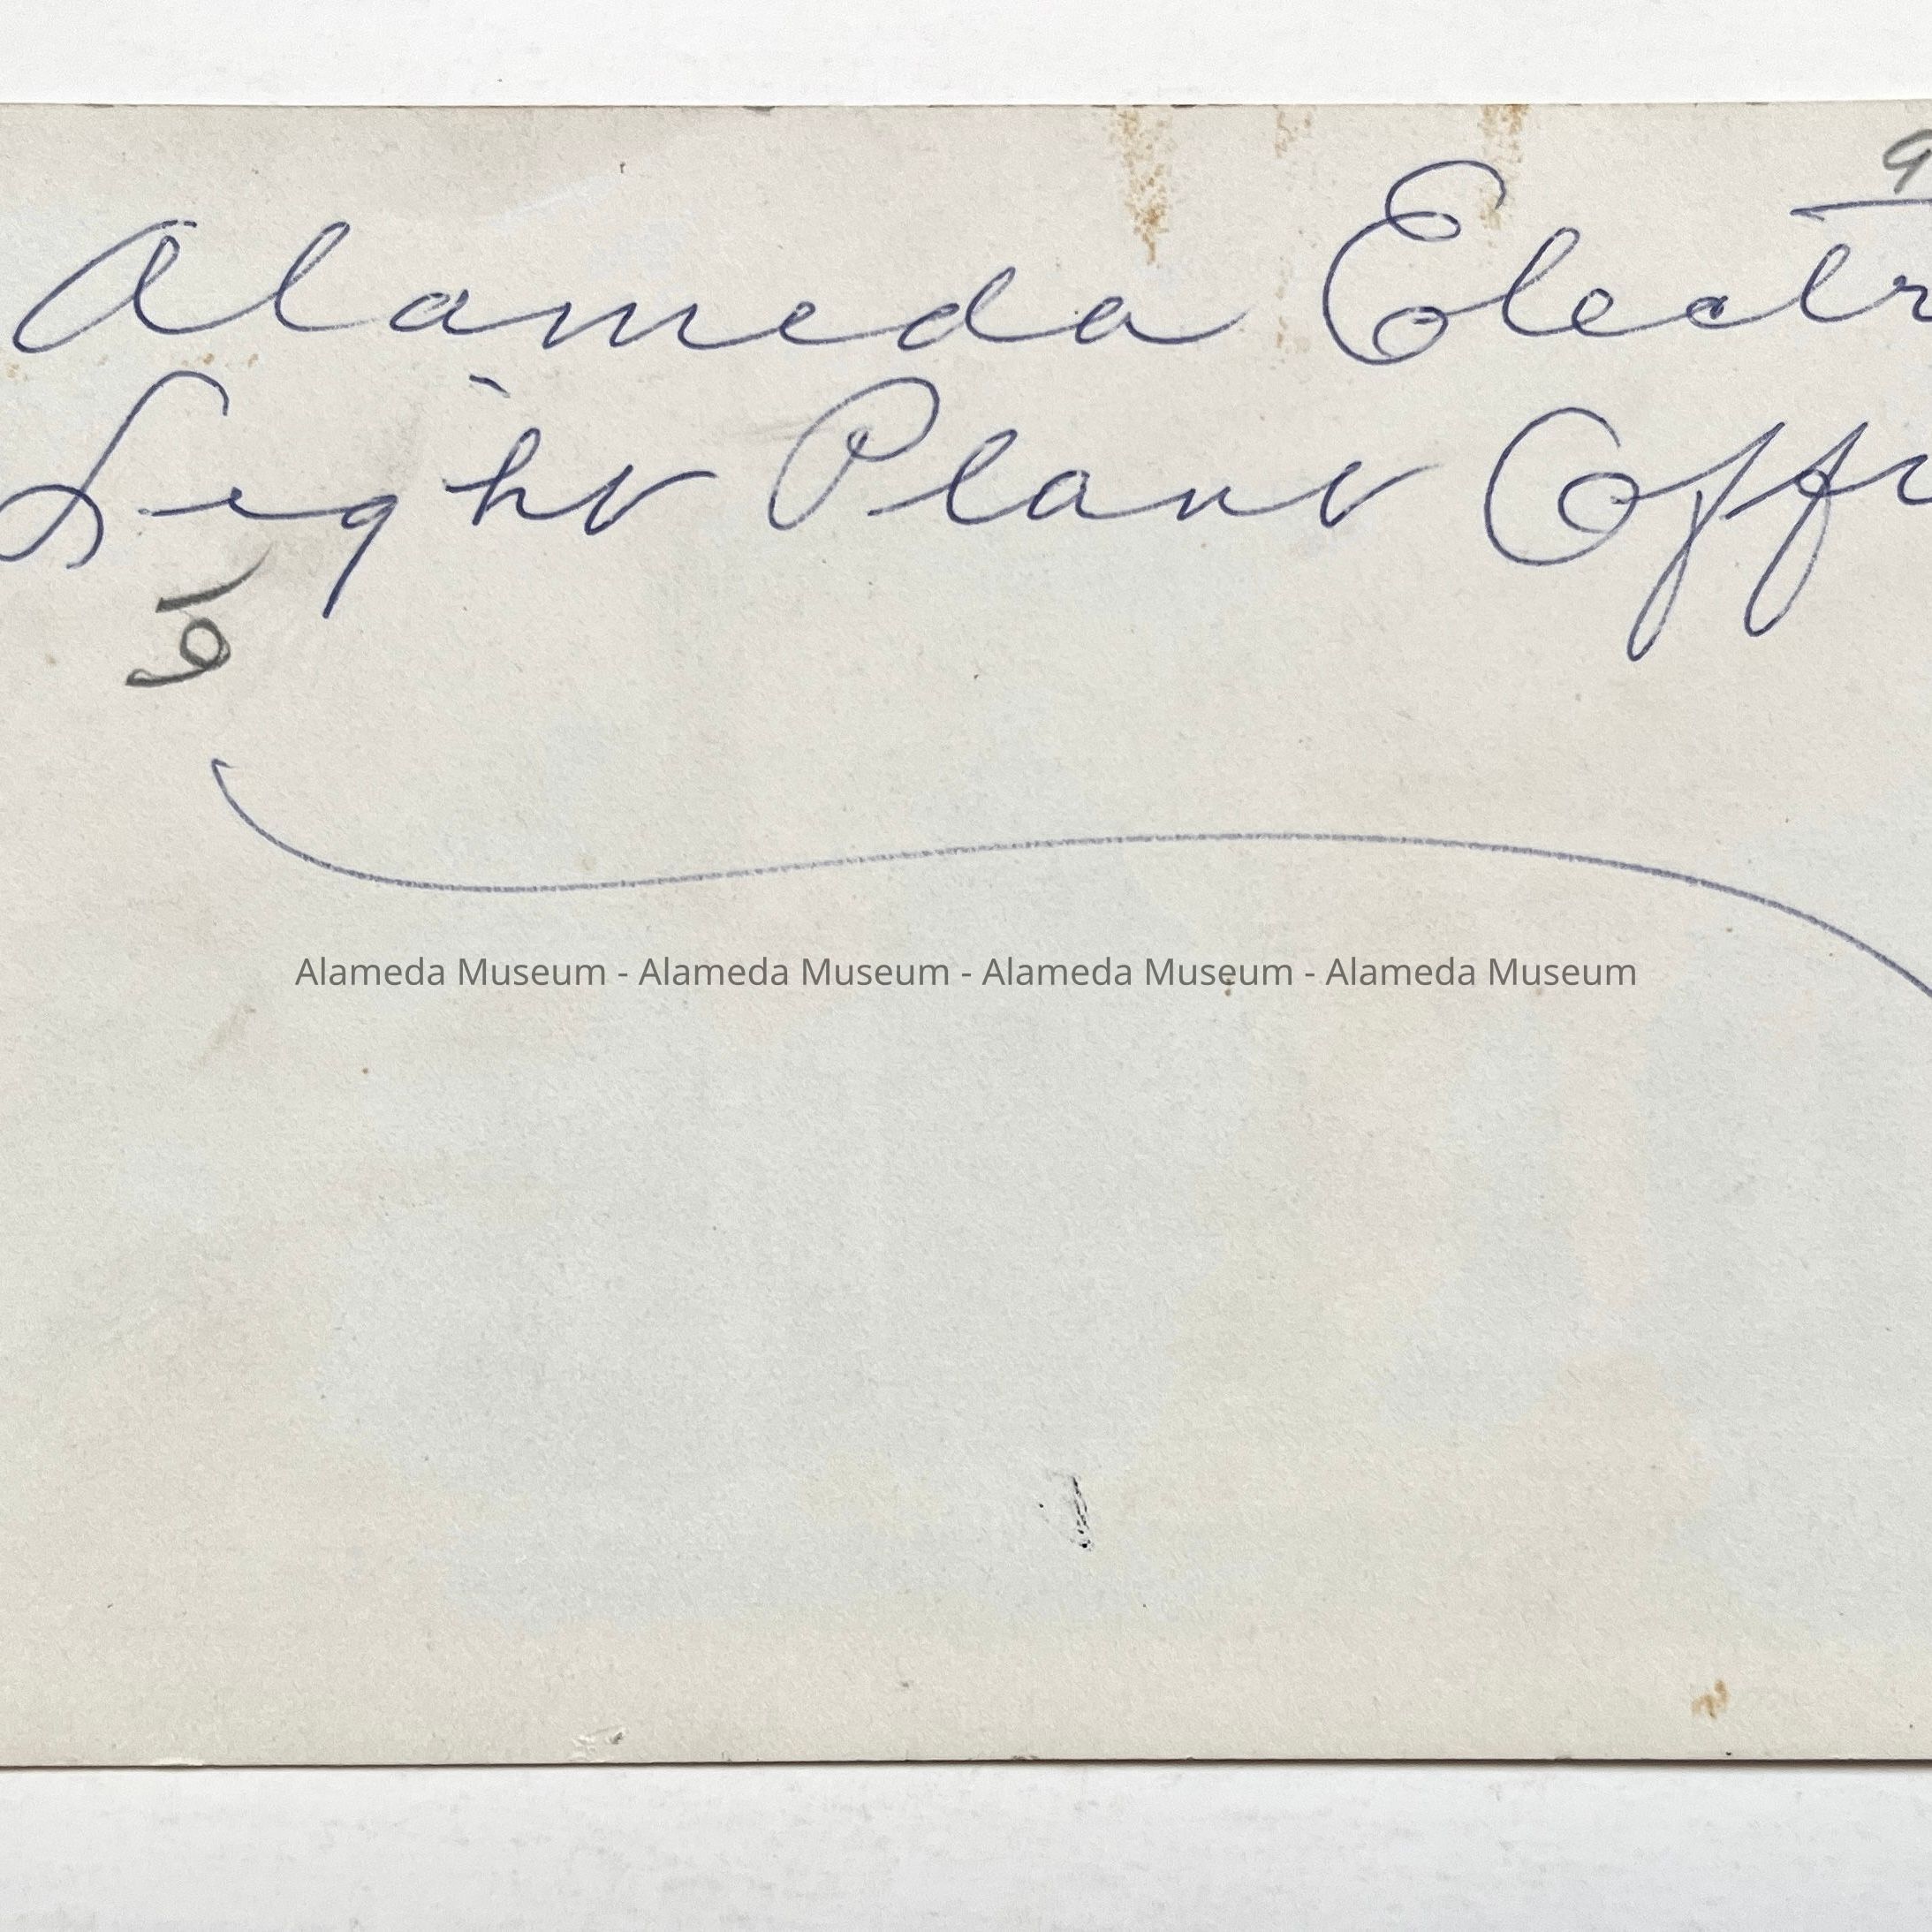 Alameda Electr
Light Plant Offi
Alameda Museum - Alameda Museum - Alameda Museum - Alameda Museum